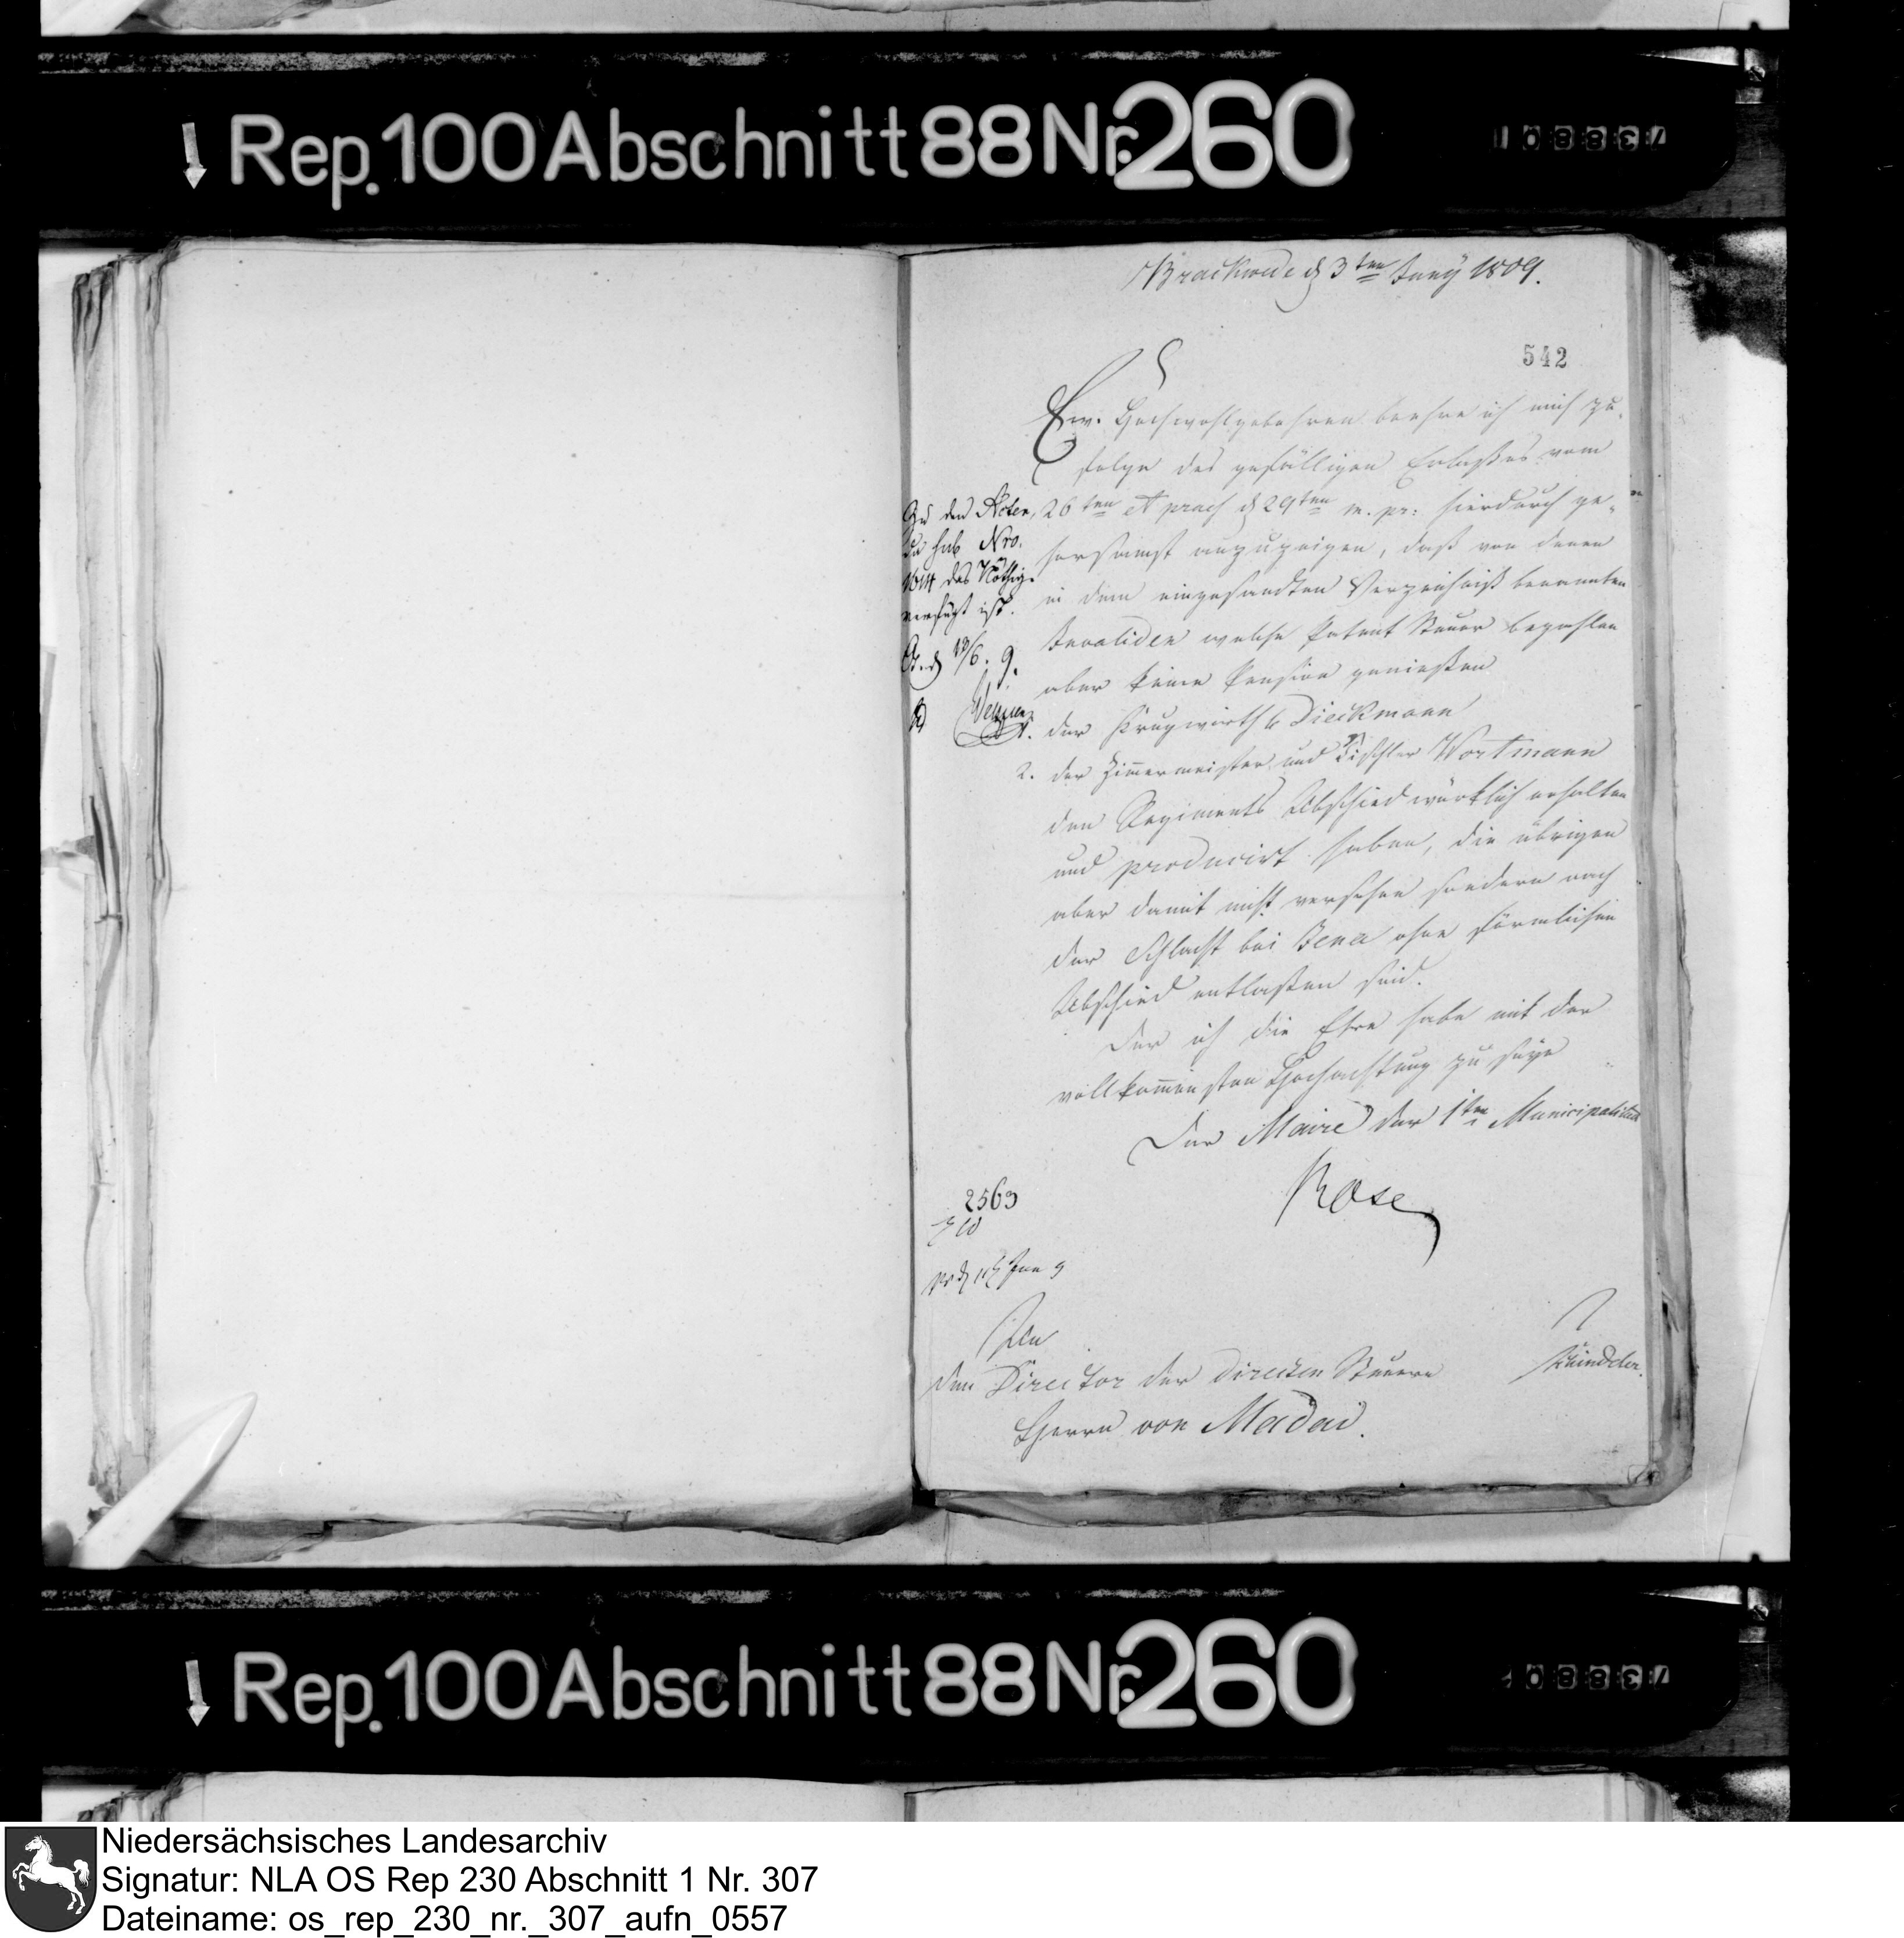 Rep. 100 Abschnitt 88 Nr. 260
738801
Brackwede d 3ten Juny 1809.
542
Ew. Hochwohlgebohren beehre ich mich zu-
folge des gefälligen Erlaßes vom
26ten et praes d 29ten m. pr: hierdurch ge-
horsamst anzuzeigen, daß von denen
in dem eingesandten Verzeichniß benannten
Invaliden welche Patent Steuer bezahlen
aber keine Pension genießen
1. der Krugwirth Dieckmann
2. der Zimmermeister und Tischler Wortmann
den Regiments Abschied würklich erhalten
und producirt haben, die übrigen
aber damit nicht versehen sondern nach
der Schlacht bei Jena ohne förmlichen
Abschied entlaßen sind.
Der ich die Ehre habe mit der
vollkommensten Hochachtung zu seyn
Der Maire der 1ten Municipalitaet
Rose
Zu den Acten,
da sub Nro.
das Nöthige
verfügt ist.
13/6. 9.
2563
Jun 9
An
den Director der directen Steuern
Herrn von Madai.
Rep. 100 Abschnitt 88 Nr. 260
73880
Niedersächsisches Landesarchiv
Signatur: NLA OS Rep 230 Abschnitt 1 Nr. 307
Dateiname: os_rep_230_nr._307_aufn_0557